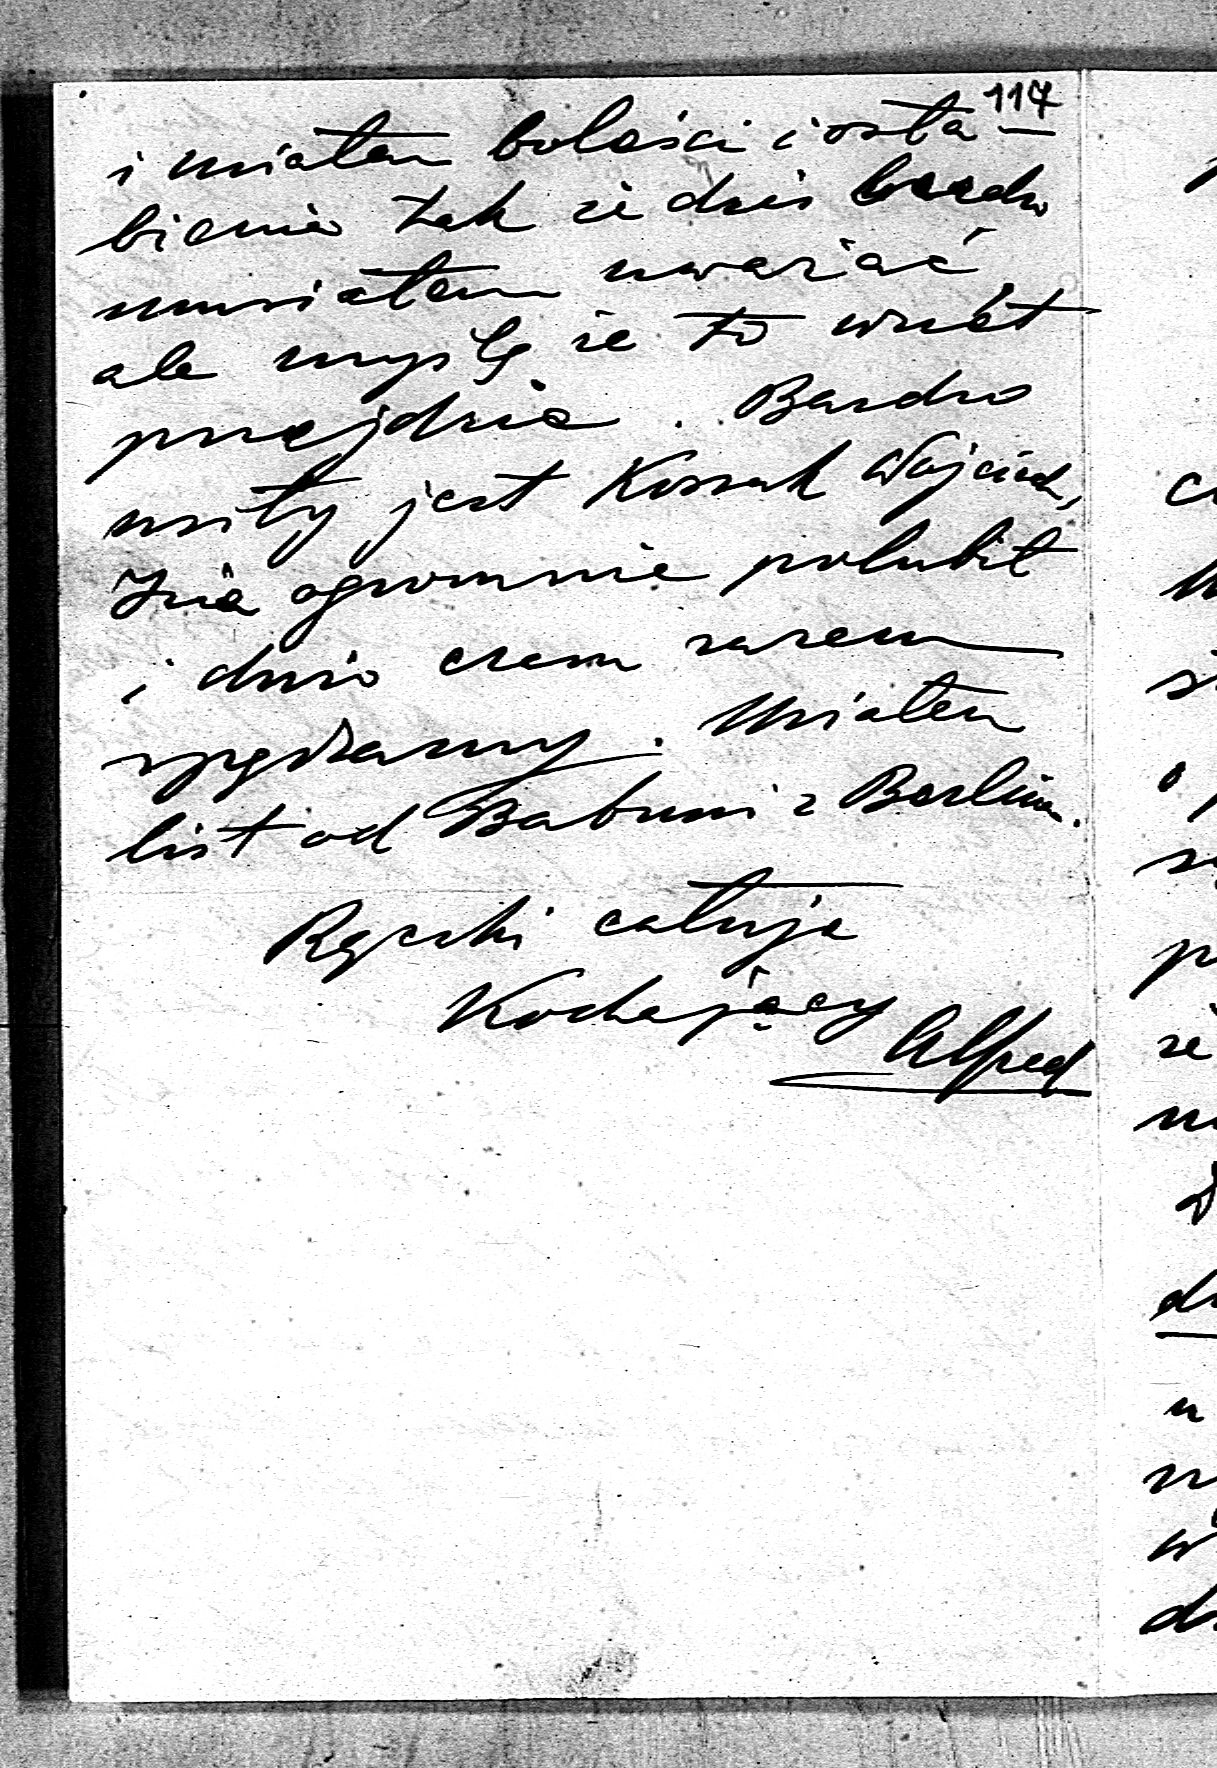 117
i miałem boleści i osła-
bienie tak że dziś bardzo
musiałem uważać,
ale myślę że to wnet
przejdzie. Bardzo
miły jest Kossak Wojciech,
ogromnie polubił
i dużo czasu razem
spędzamy. Miałem
list od Babuni z Berlina.
Rączki całuję
Kochający
Alfred